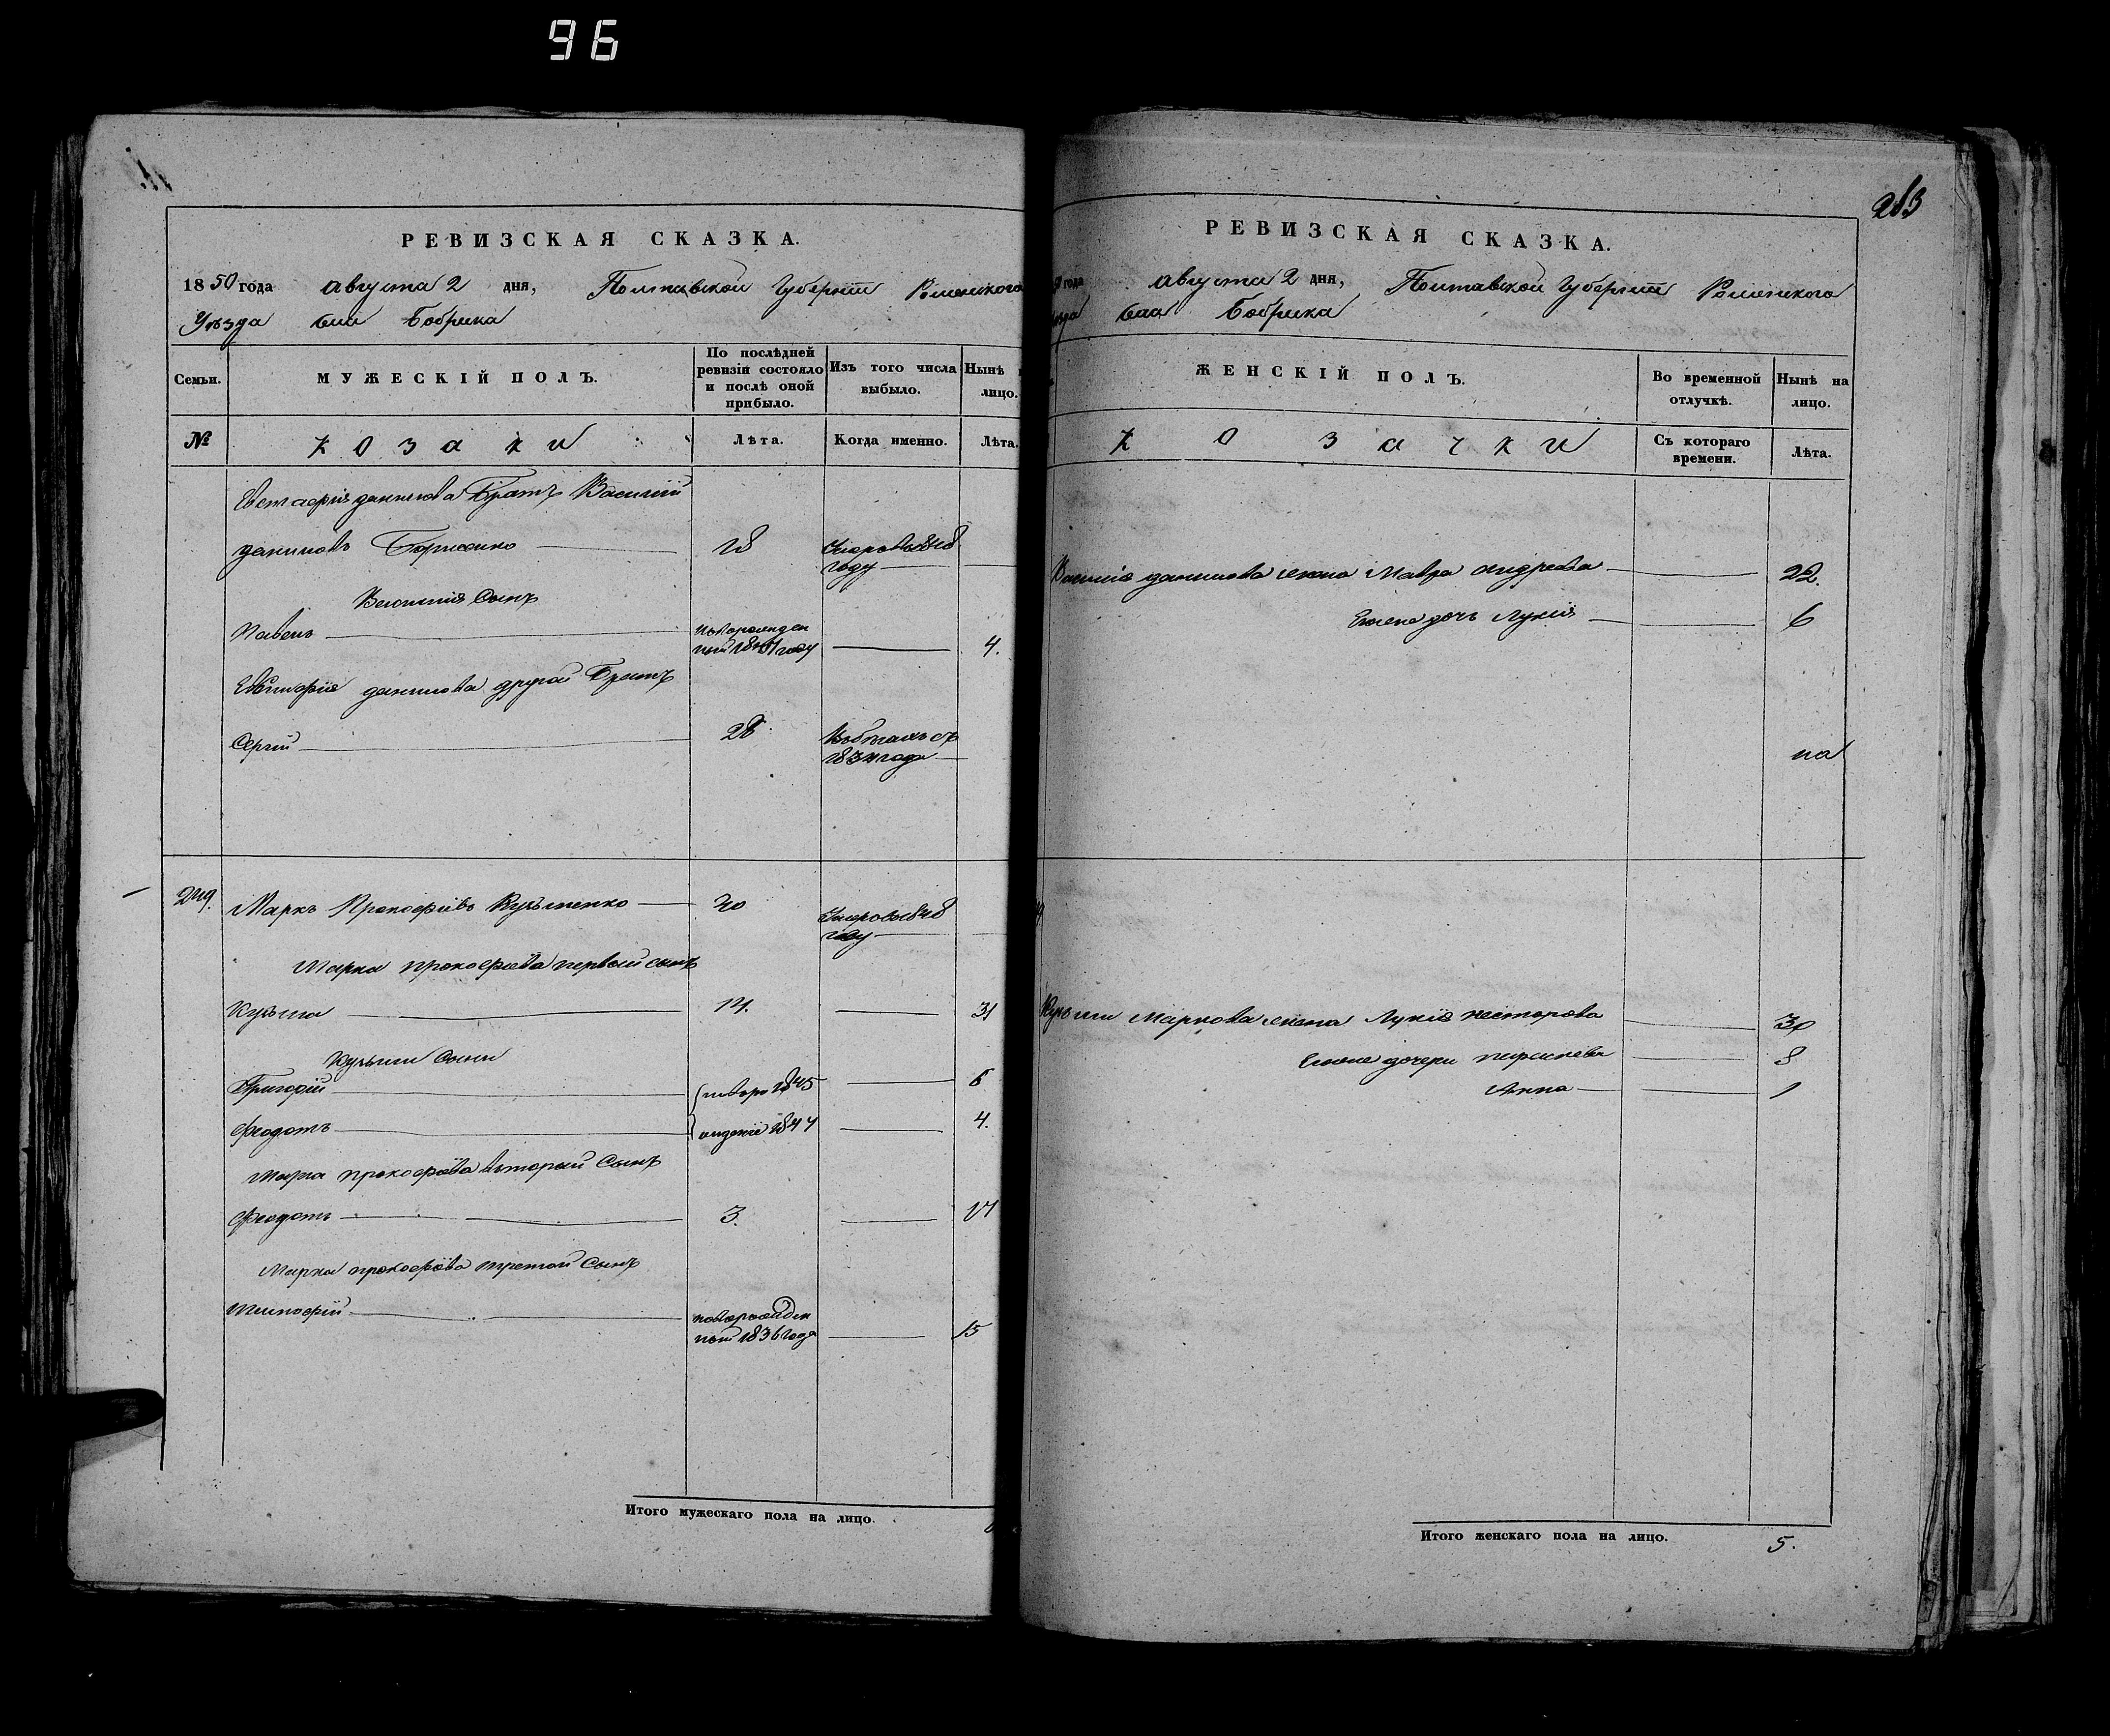 96
РЕВИЗСКАЯ СКАЗКА.
1850 года августа 2 дня, Полтавской Губернии Роменского
Уѣзда села Бобрика
Семьи.
МУЖЕСКІЙ ПОЛЪ.
По послѣдней ревизіи состояло и послѣ оной прибыло.
Изъ того числа выбыло.
Нынѣ
лицо.
№
козаки
Лѣта.
Когда именно.
Лѣта.
Данилова Братъ Василій
Даниловъ Борисенко
28
Умеръ 1848
году
Василія Сынъ
Павелъ
новорожден
ный году
4.
Данилова другой Братъ
Сергій
28
1834 года
249.
Маркъ Прокофіевъ Кузьменко
40
Умеръ 1848
году
Марка Прокофіева первый сынъ
Кузьма
14.
31
Кузьмы Сыны
Григорій
1845
6
Феодотъ
1847
4.
Марка Прокофіева вторый Сынъ
Феодотъ
3.
Марка Прокофіева третой Сынъ
Тимофій
новорожден
ный 1836 года
15
Итого мужескаго пола на лицо.
213
РЕВИЗСКАЯ СКАЗКА.
года августа 2 дня, Полтавской Губернии Роменского
села Бобрика
ЖЕНСКІЙ ПОЛЪ.
Во временной отлучкѣ.
Нынѣ на лицо.
козачки
Съ котораго времени.
Лѣта.
Василія Данилова жена Мавра Андреева
22.
Ево жена дочь Лукія
6
на
Кузьмы Маркова жена Лукія Несторова
30
дочери
8
Анна
1
Итого женскаго пола на лицо.
5.